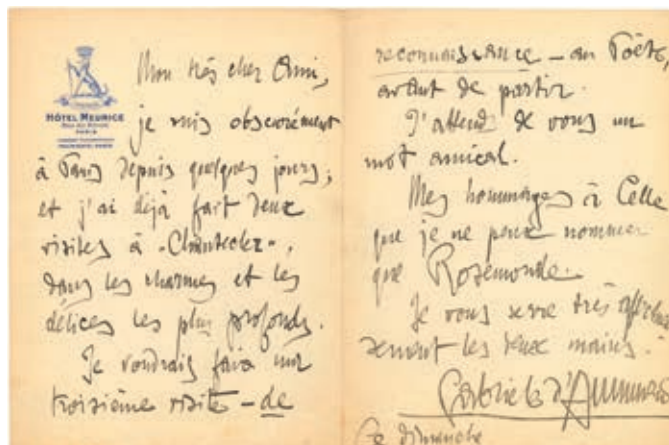 HÔTEL MEURICE
PARIS
Mon très cher Ami,
je suis obscurément
à Paris depuis quelques jours ;
et j'ai déjà fait deux
visites à « Chantecler »,
dans les charmes et les
délices les plus profonds.
Je voudrais faire une
troisième visite – de
reconnaissance – au Poète,
avant de partir.
J'attends de vous un
mot amical.
Mes hommages à Celle
que je ne puis nommer
que Rosemonde.
Je vous serre très affectueu
sement les deux mains.
Gabriele d'Annunzio
Ce dimanche